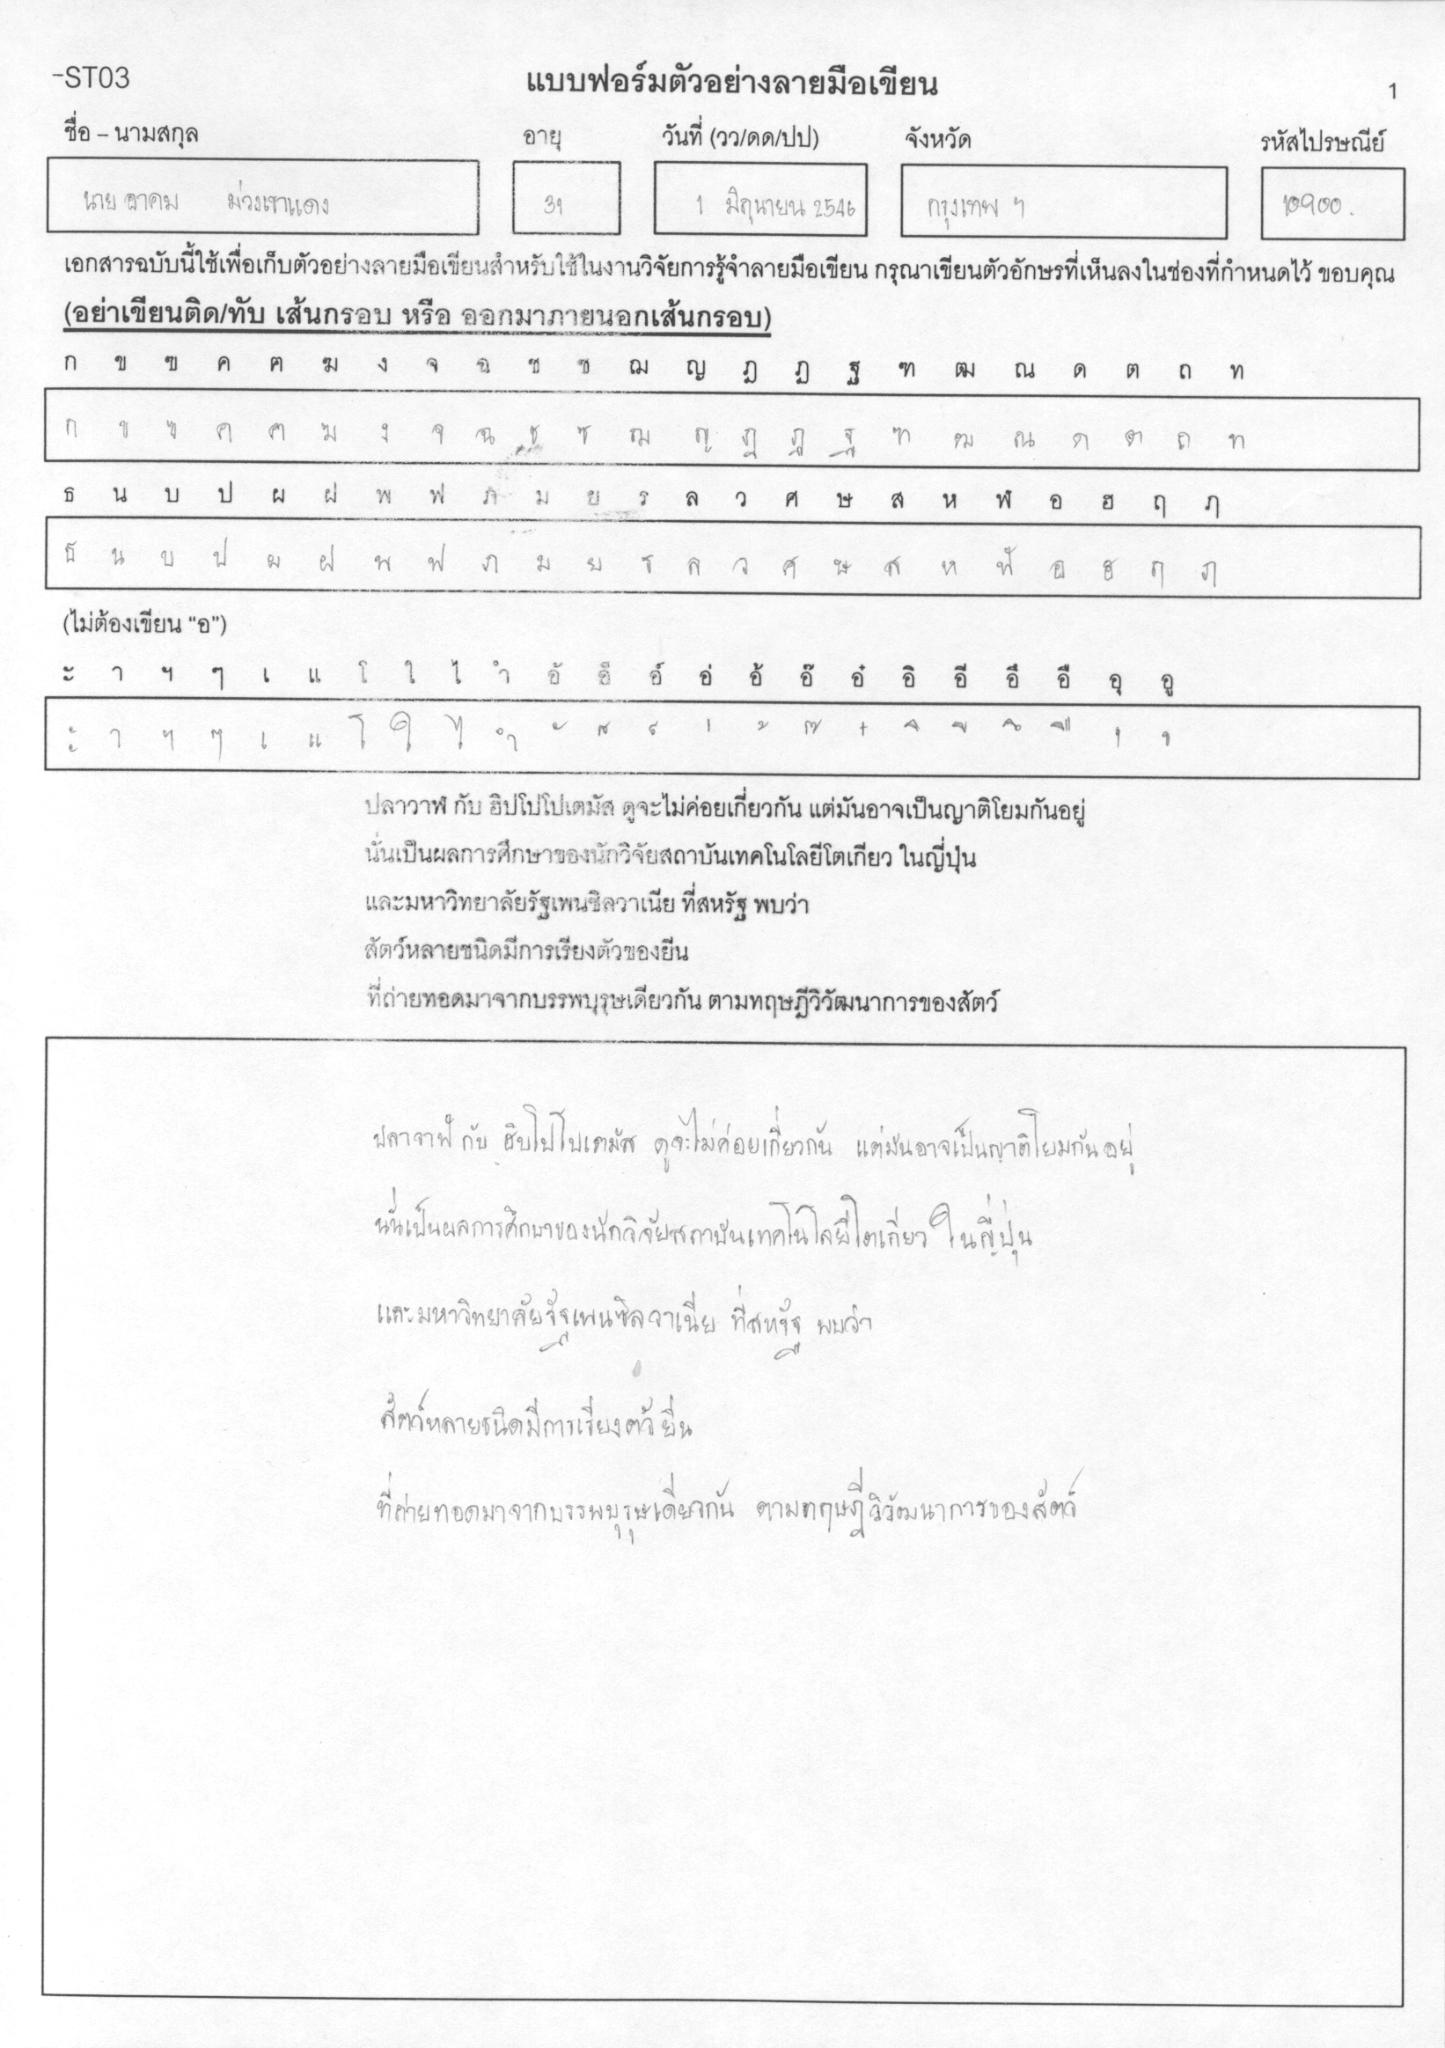 -ST03
แบบฟอร์มตัวอย่างลายมือเขียน
1
ชื่อ – นามสกุล อายุ วันที่ (วว/ดด/ปป) จังหวัด รหัสไปรษณีย์
นาย อาคม ม่วงเขาแดง 31 1 มิถุนายน 2546 กรุงเทพ ฯ 10900.
เอกสารฉบับนี้ใช้เพื่อเก็บตัวอย่างลายมือเขียนสำหรับใช้ในงานวิจัยการรู้จำลายมือเขียน กรุณาเขียนตัวอักษรที่เห็นลงในช่องที่กำหนดไว้ ขอบคุณ
(อย่าเขียนติด/ทับ เส้นกรอบ หรือ ออกมาภายนอกเส้นกรอบ)
ก ข ฃ ค ฅ ฆ ง จ ฉ ช ซ ฌ ญ ฎ ฏ ฐ ฑ ฒ ณ ด ต ถ ท
ก ข ฃ ค ฅ ฆ ง จ ฉ ช ซ ฌ ญ ฎ ฏ ฐ ฑ ฒ ณ ด ต ถ ท
ธ น บ ป ผ ฝ พ ฟ ภ ม ย ร ล ว ศ ษ ส ห ฬ อ ฮ ฤ ฦ
ธ น บ ป ผ ฝ พ ฟ ภ ม ย ร ล ว ศ ษ ส ห ฬ อ ฮ ฤ ฦ
(ไม่ต้องเขียน “อ”)
ะ า ฯ ๆ เ แ โ ใ ไ ำ อั อ็ อ์ อ่ อ้ อ๊ อ๋ อิ อี อึ อื อุ อู
ะ า ฯ ๆ เ แ โ ใ ไ ำ ั ็ ์ ่ ้ ๊ ๋ ิ ี ึ ื ุ ู
ปลาวาฬ กับ ฮิปโปโปเตมัส ดูจะไม่ค่อยเกี่ยวกัน แต่มันอาจเป็นญาติโยมกันอยู่
นั่นเป็นผลการศึกษาของนักวิจัยสถาบันเทคโนโลยีโตเกียว ในญี่ปุ่น
และมหาวิทยาลัยรัฐเพนซิลวาเนีย ที่สหรัฐ พบว่า
สัตว์หลายชนิดมีการเรียงตัวของยีน
ที่ถ่ายทอดมาจากบรรพบุรุษเดียวกัน ตามทฤษฎีวิวัฒนาการของสัตว์
ปลาวาฬ กับ ฮิปโปโปเตมัส ดูจะไม่ค่อยเกี่ยวกัน แต่มันอาจเป็นญาติโยมกันอยู่
นั่นเป็นผลการศึกษาของนักวิจัยสถาบันเทคโนโลยีโตเกี่ยว ในญี่ปุ่น
และมหาวิทยาลัยรัฐเพนซิลวาเนีย ที่สหรัฐ พบว่า
สัตว์หลายชนิดมีการเรียงตัวยีน
ที่ถ่ายทอดมาจากบรรพบุรุษเดียวกัน ตามทฤษฎีวิวัฒนาการของสัตว์